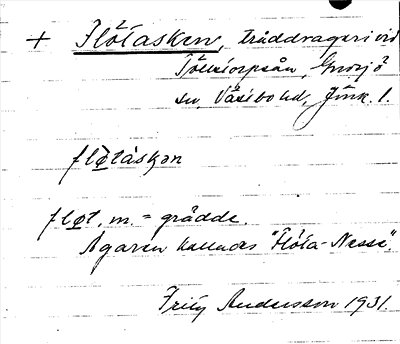 + Flötasken, tråddrageri vid
Gnosjö
sn, Västbo hd, Jönk. l.
flø̀táskən
fløt, m. = grädde.
Ägaren kallades "Flöta-Nisse".
Fritz Andersson 1931.